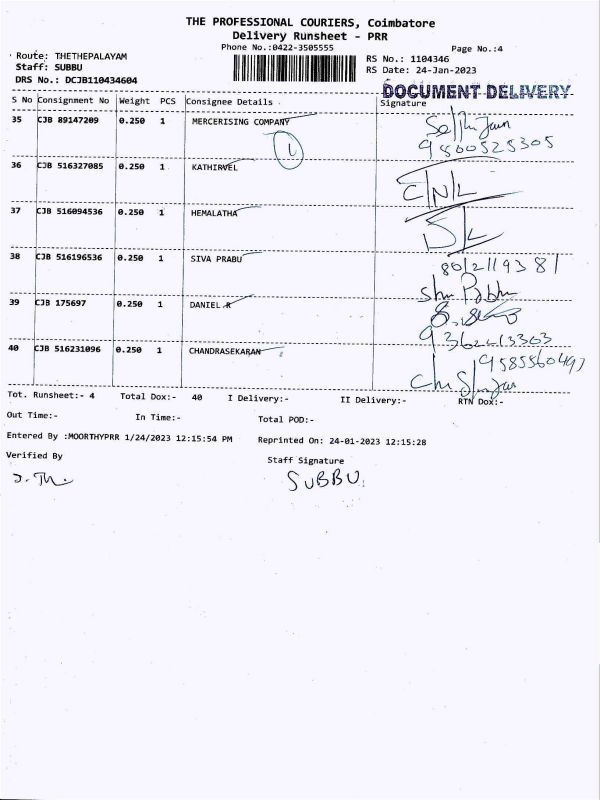 THE PROFESSIONAL COURIERS, Coimbatore
Delivery Runsheet - PRR
Phone No.:0422-3505555
Page No.:4
Route: THETHEPALAYAM
RS No.: 1104346
Staff: SUBBU
RS Date: 24-Jan-2023
DRS No.: DCJB110434604
DOCUMENT DELIVERY
S No Consignment No Weight PCS Consignee Details Signature
35 CJB 89147209 0.250 1 MERCERISING COMPANY
9500525305
1
36 CJB 516327085 0.250 1 KATHIRVEL C/N/L
37 CJB 516094536 0.250 1 HEMALATHA D/L
38 CJB 516196536 0.250 1 SIVA PRABU 8012119381
39 CJB 175697 0.250 1 DANIEL R
9362413303
40 CJB 516231096 0.250 1 CHANDRASEKARAN
Tot. Runsheet:- 4 Total Dox:- 40 I Delivery:- II Delivery:- RTN Dox:-
Out Time:- In Time:- Total POD:-
Entered By :MOORTHYPRR 1/24/2023 12:15:54 PM Reprinted On: 24-01-2023 12:15:28
Verified By Staff Signature
SUBBU